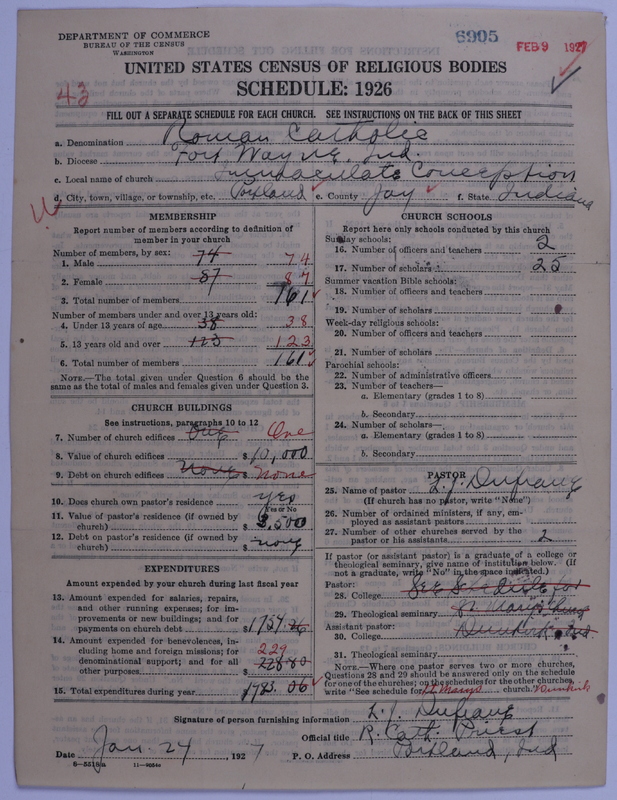 DEPARTMENT OF COMMERCE
BUREAU OF THE CENSUS
WASHINGTON
6905
FEB 9 1927
UNITED STATES CENSUS OF RELIGIOUS BODIES
SCHEDULE: 1926
43
FILL OUT A SEPARATE SCHEDULE FOR EACH CHURCH. SEE INSTRUCTIONS ON THE BACK OF THIS SHEET
a. Denomination Roman Catholic
b. Diocese Fort Wayne, Ind.
c. Local name of church Immaculate Conception
d. City, town, village, or township, etc. Portland e. County Jay f. State Indiana
MEMBERSHIP
Report number of members according to definition of
member in your church
Number of members, by sex:
1. Male 74 74
2. Female 87 87
3. Total number of members 161
Number of members under and over 13 years old:
4. Under 13 years of age 38 38
5. 13 years old and over 123 123
6. Total number of members 161
NOTE.—The total given under Question 6 should be the
same as the total of males and females given under Question 3.
CHURCH BUILDINGS
See instructions, paragraphs 10 to 12
7. Number of church edifices One One
8. Value of church edifices $ 10,000
9. Debt on church edifices None $ None
10. Does church own pastor's residence yes
Yes or No
11. Value of pastor's residence (if owned by
church) $ 3,500
12. Debt on pastor's residence (if owned by
church) $ none
EXPENDITURES
Amount expended by your church during last fiscal year
13. Amount expended for salaries, repairs,
and other running expenses; for im-
provements or new buildings; and for
payments on church debt $
14. Amount expended for benevolences, in-
cluding home and foreign missions; for
denominational support; and for all
other purposes 229 $
15. Total expenditures during year $ 06
CHURCH SCHOOLS
Report here only schools conducted by this church
Sunday schools:
16. Number of officers and teachers 2
17. Number of scholars 25
Summer vacation Bible schools:
18. Number of officers and teachers
19. Number of scholars
Week-day religious schools:
20. Number of officers and teachers
21. Number of scholars
Parochial schools:
22. Number of administrative officers
23. Number of teachers—
a. Elementary (grades 1 to 8)
b. Secondary
24. Number of scholars—
a. Elementary (grades 1 to 8)
b. Secondary
PASTOR
25. Name of pastor L. J. Dufrane
(If church has no pastor, write "None")
26. Number of ordained ministers, if any, em-
ployed as assistant pastors
27. Number of other churches served by the
pastor or his assistants 2
If pastor (or assistant pastor) is a graduate of a college or
theological seminary, give name of institution below. (If
not a graduate, write "No" in the space indicated.)
Pastor:
28. College See Schedule for
29. Theological seminary St Marys Church
Assistant pastor:
30. College Dunkirk Ind
31. Theological seminary
NOTE.—Where one pastor serves two or more churches,
Questions 28 and 29 should be answered only on the schedule
for one of the churches; on the schedules for the other churches,
write "See schedule for St Marys church. Dunkirk
Signature of person furnishing information L. J. Dufrane
Official title R. Cath. Priest
Date Jan. 24, 1927 P. O. Address Portland, Ind
8-5518a 11-9054c